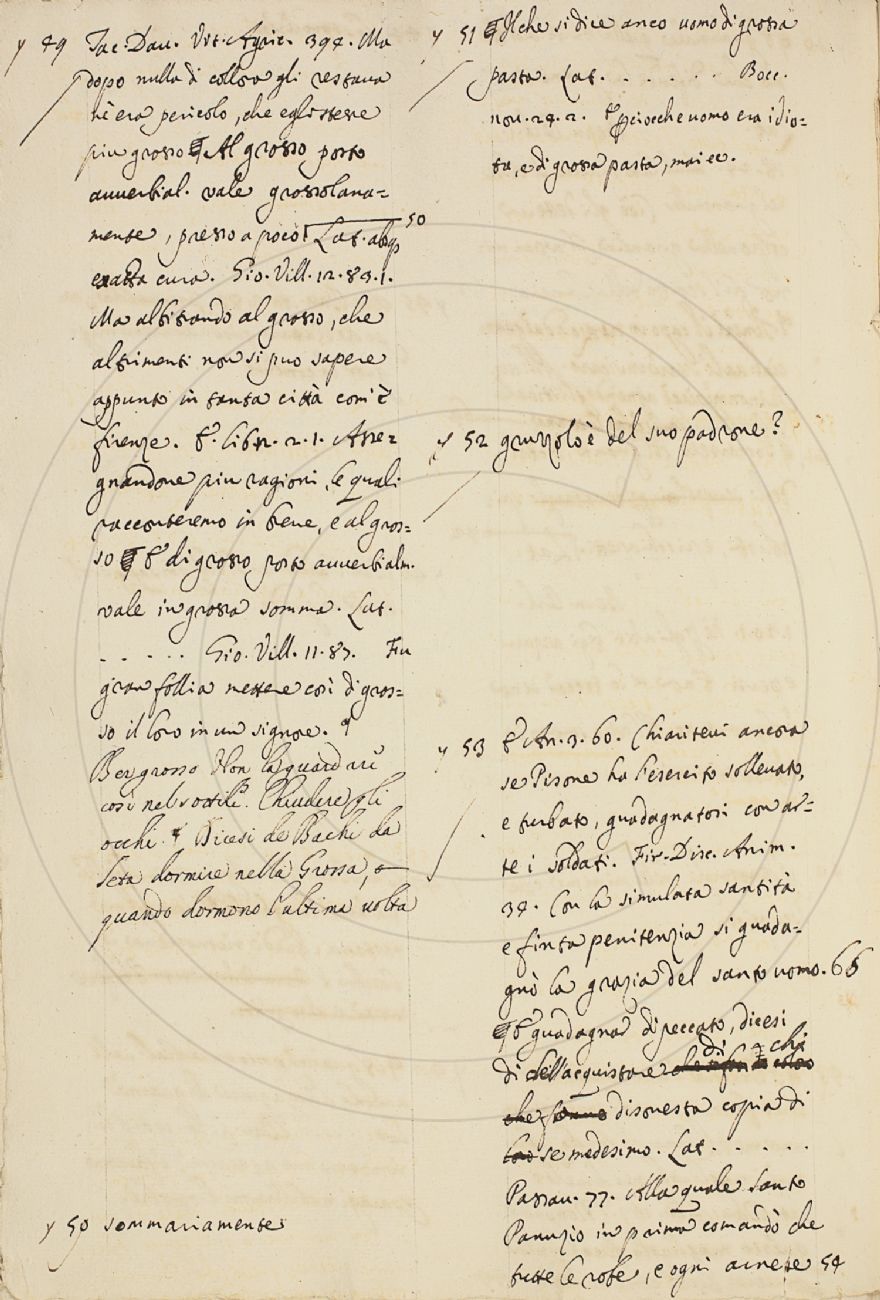 y 49 Tac. Dav. Vit. Agric. 394. Ma
dopo nulla di collora gli restava
nè era pericolo, che egli stesse
piu grosso ¶ Al grosso posto
avverbial. vale grossolana=
mente, presso a poco. Lat. absq 50
exacta cura. Gio. Vill. 12. 83. 1.
Ma albitrando al grosso, che
altrimenti non si puo sapere
appunto in tanta città com'è
firenze. E libr. 2. 1. Asse=
gnandone piu ragioni, le quali
racconteremo in breve, e al gros=
so ¶ E di grosso posto avverbialm.
vale in grossa somma. Lat.
. . . . . Gio. Vill. 11. 87. Fu
gran follia mettere così di gros=
so il loro in un signore. ¶
Ber grosso Non la guardare
così nel sottile. Chiudere gli
occhi. ¶ Dicesi de Bachi da
Seta dormire nella Grossa,
quando dormono l'ultima volta
y 50 sommariamente
y 51 ¶ Il che si dice anco uomo di grossa
pasta. Lat. . . . . . . Bocc.
nov. 24. 2. perciocche uomo era idio=
ta, e di grossa pasta, mai ec.
y 52 gruzzolo è del suo padrone?
y 53 E An. 3. 60. Chiaritevi ancora
se Pisone ha l'esercito sollevato,
e turbato, guadagnatosi con ar=
te i soldati. Fir. Disc. Anim.
34. Con la simulata santità
e finta penitenzia si guada=
gnò la grazia del santo uomo. 65
¶ E guadagnar di peccato, dicesi
di chi
di dell'acquistare
disonesta copia di
loro se medesimo. Lat. . . . . .
Passav. 77. Alla quale Santo
Panuzio in prima comandò che
tutte le robe, e ogni arnese 54